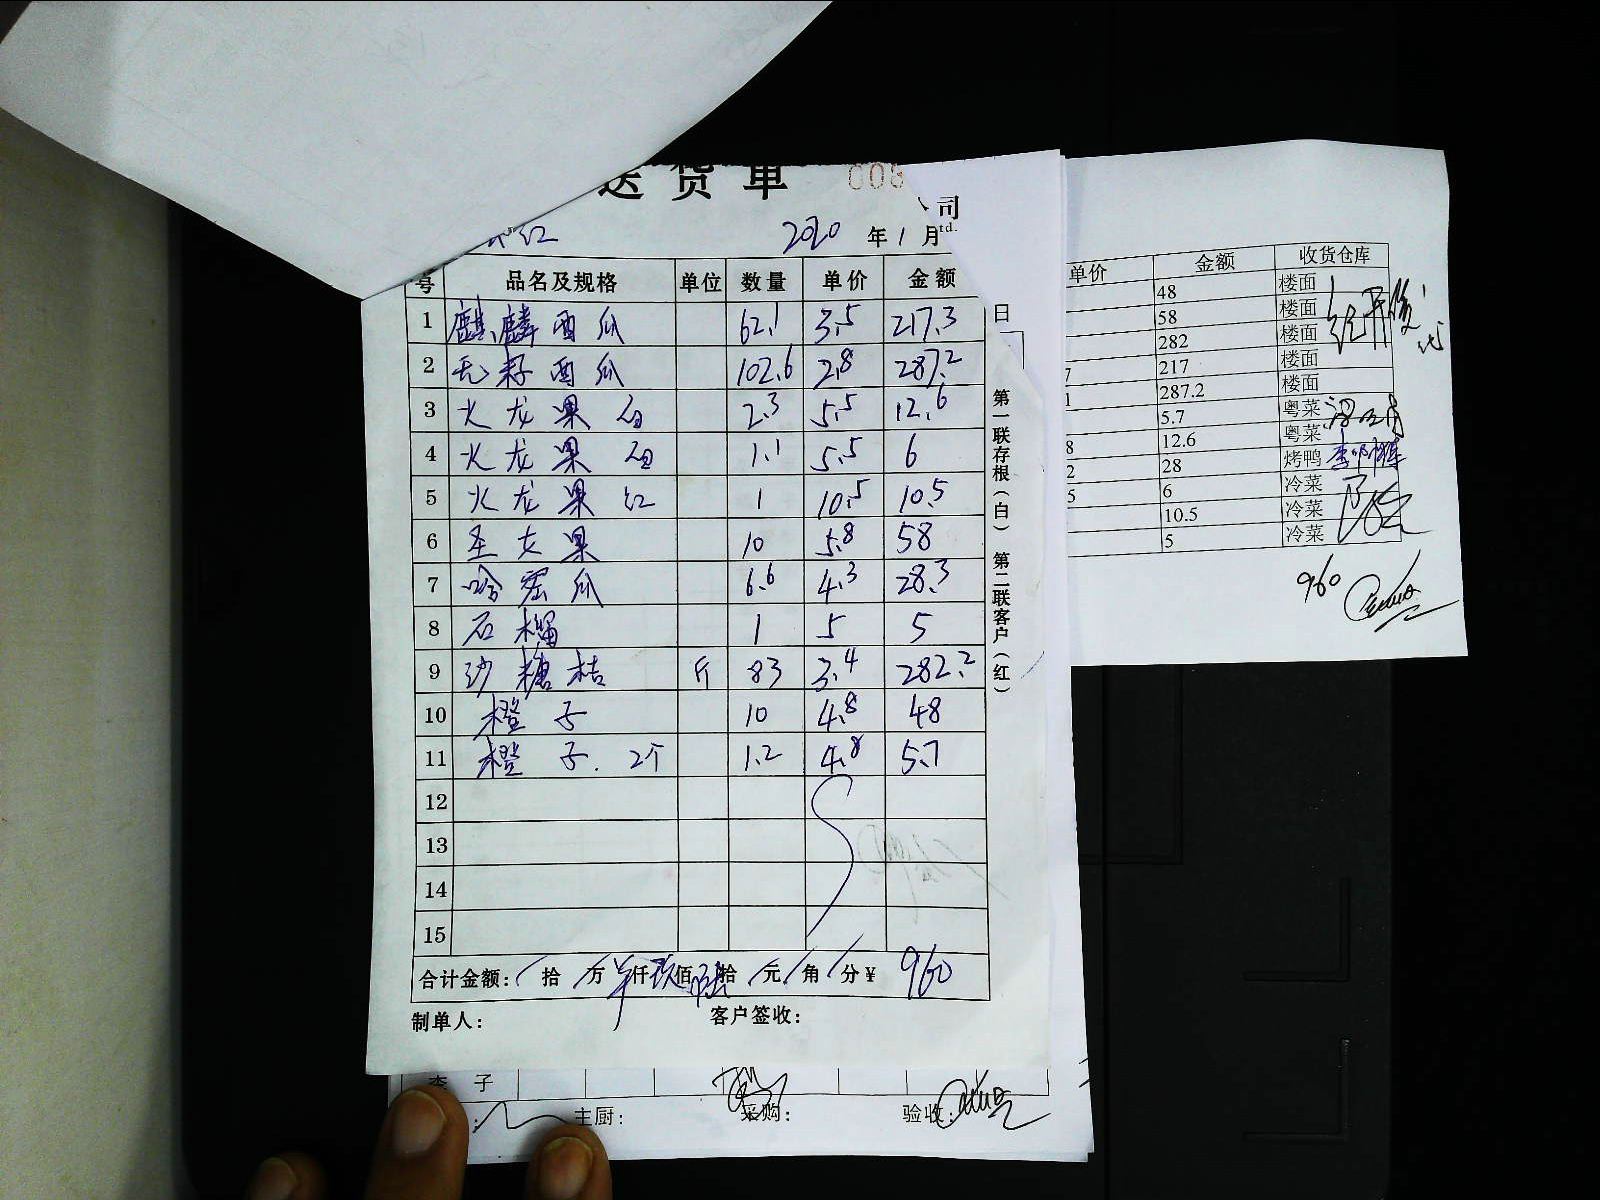 送货单 008
公司
td.
红 2020 年 1 月
日
号 品名及规格 单位 数量 单价 金额
1 麒麟西瓜 62.1 3.5 217.3
2 无籽西瓜 102.6 2.8 287.2
3 火龙果 白 2.3 5.5 12.6
4 火龙果 白 1.1 5.5 6
5 火龙果 红 1 10.5 10.5
6 圣女果 10 5.8 58
7 哈密瓜 6.6 4.3 28.3
8 石榴 1 5 5
9 沙糖桔 斤 83 3.4 282.2
10 橙子 10 4.8 48
11 橙子. 2个 1.2 4.8 5.7
12
13
14
15
合计金额: 拾 万 仟 玖 佰 陆 拾 元 角 分 ¥ 960
制单人: 客户签收:
第一联存根(白) 第二联客户(红)
李子
主厨: 采购: 验收:
单价 金额 收货仓库
48 楼面
58 楼面
282 楼面
7 217 楼面
1 287.2 楼面
5.7 粤菜
8 12.6 粤菜
2 28 烤鸭
5 6 冷菜
10.5 冷菜
5 冷菜
960